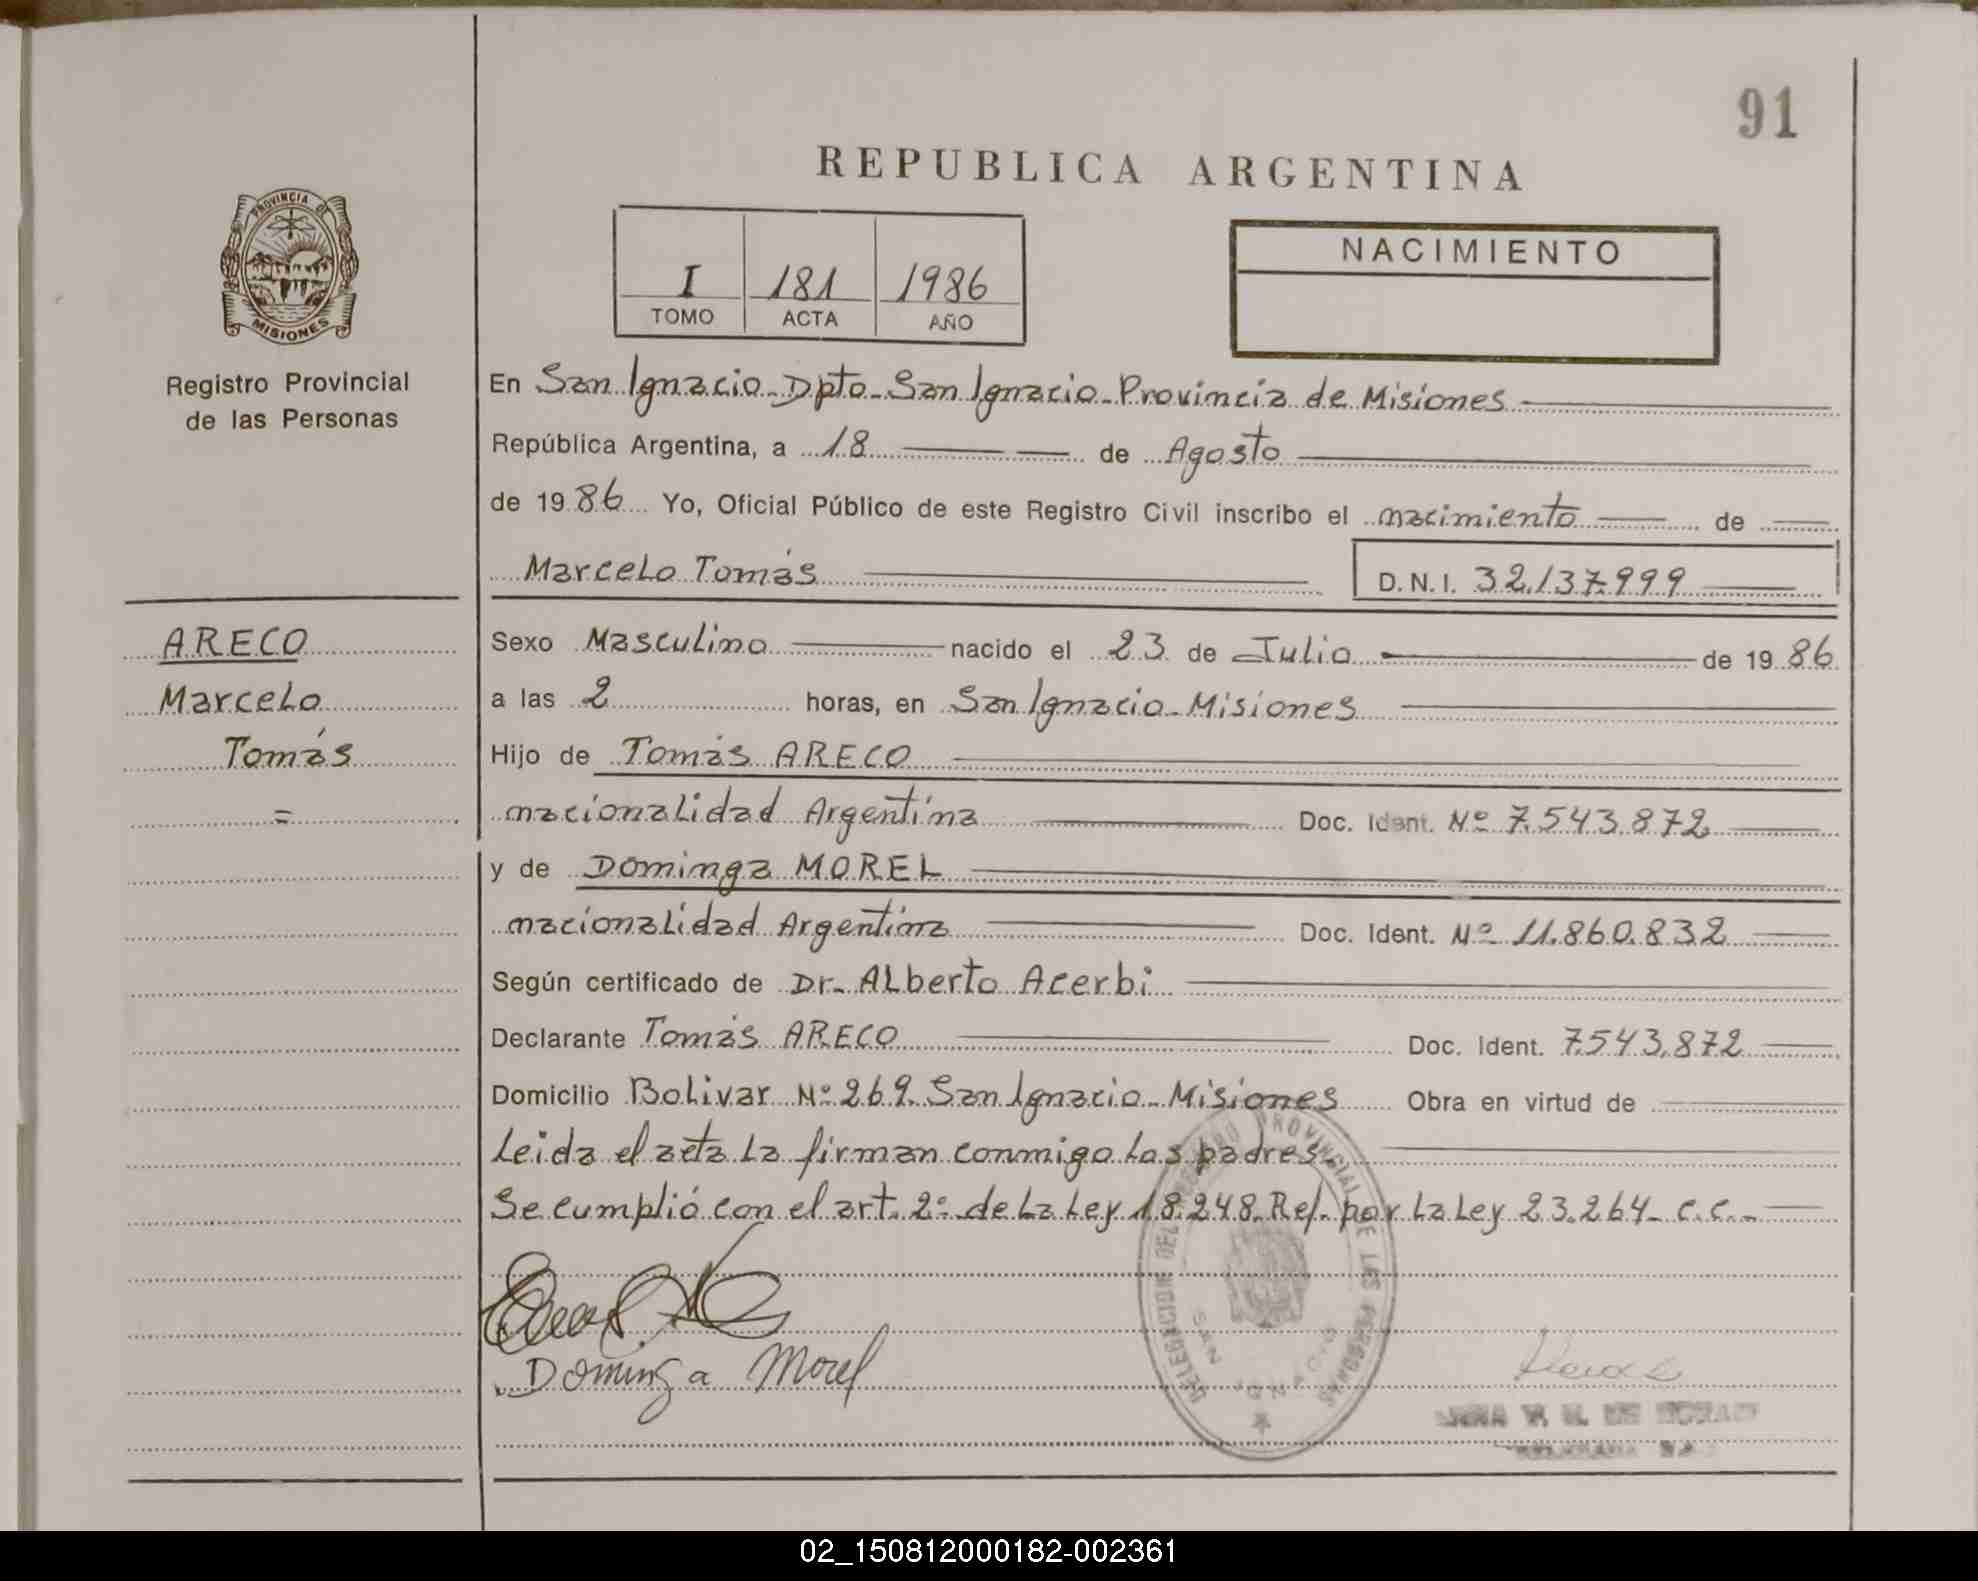 91
REPUBLICA ARGENTINA
PROVINCIA DE
MISIONES
Registro Provincial
de las Personas
I 181 1986
TOMO ACTA AÑO
NACIMIENTO
En San Ignacio - Dpto - San Ignacio - Provincia de Misiones
República Argentina, a 18 de Agosto
de 1986 Yo, Oficial Público de este Registro Civil inscribo el nacimiento de
Marcelo Tomás D.N.I. 32.137.999
ARECO
Marcelo
Tomás
=
Sexo Masculino nacido el 23 de Julio de 1986
a las 2 horas, en San Ignacio - Misiones
Hijo de Tomás ARECO
nacionalidad Argentina Doc. Ident. Nº 7.543.872
y de Dominga MOREL
nacionalidad Argentina Doc. Ident. Nº 11.860.832
Según certificado de Dr. Alberto Acerbi
Declarante Tomás ARECO Doc. Ident. 7.543.872
Domicilio Bolivar Nº 269. San Ignacio - Misiones Obra en virtud de
Leida el acta La firman conmigo Los padres.
Se cumplió con el art. 2º de La Ley 18.248. Ref. por La Ley 23.264 - C.C. -
DELEGACION DEL REGISTRO PROVINCIAL DE LAS PERSONAS
SAN IGNACIO
Dominga Morel
02_150812000182-002361